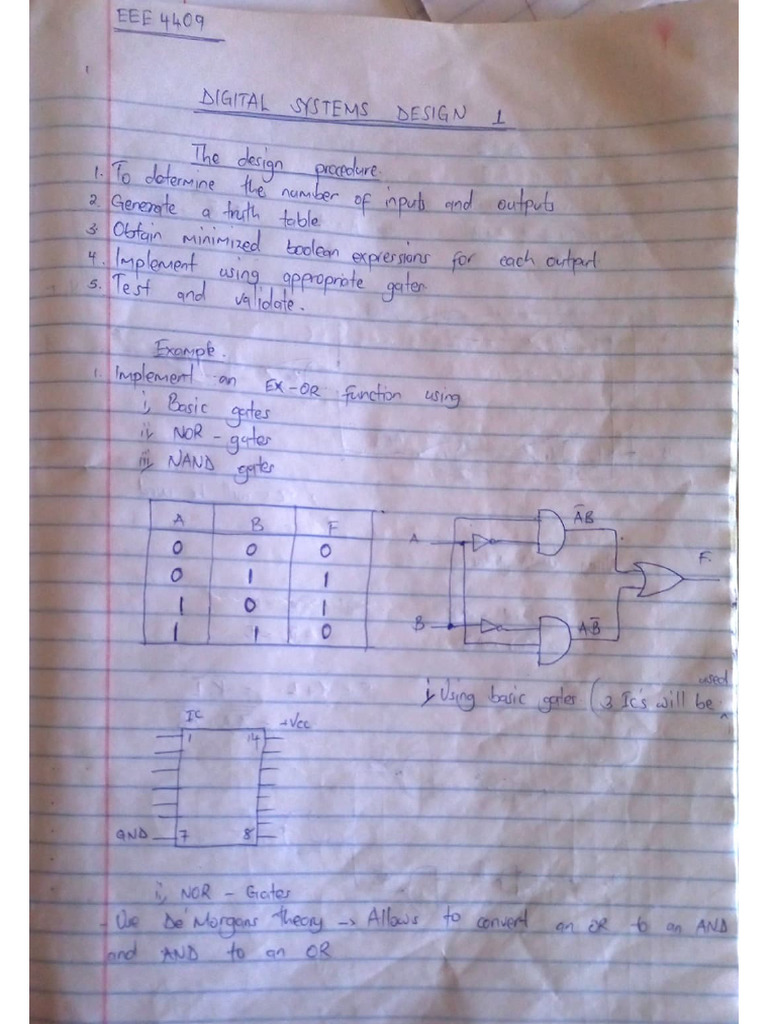 EEE 4409
DIGITAL SYSTEMS DESIGN 1
The design procedure.
1. To determine the number of inputs and outputs
2. Generate a truth table
3. Obtain minimized boolean expressions for each output
4. Implement using appropriate gates
5. Test and validate.
Example.
1. Implement an EX-OR function using
i, Basic gates
ii, NOR - gates
iii, NAND gates
A B F
0 0 0
0 1 1
1 0 1
1 1 0
A
B
A̅B
AB̅
F.
i, Using basic gates (3 Ic's will be used
IC
+Vcc
1 14
GND 7 8
ii, NOR - Gates
- Use De'Morgans Theory → Allows to convert an OR to an AND
and AND to an OR